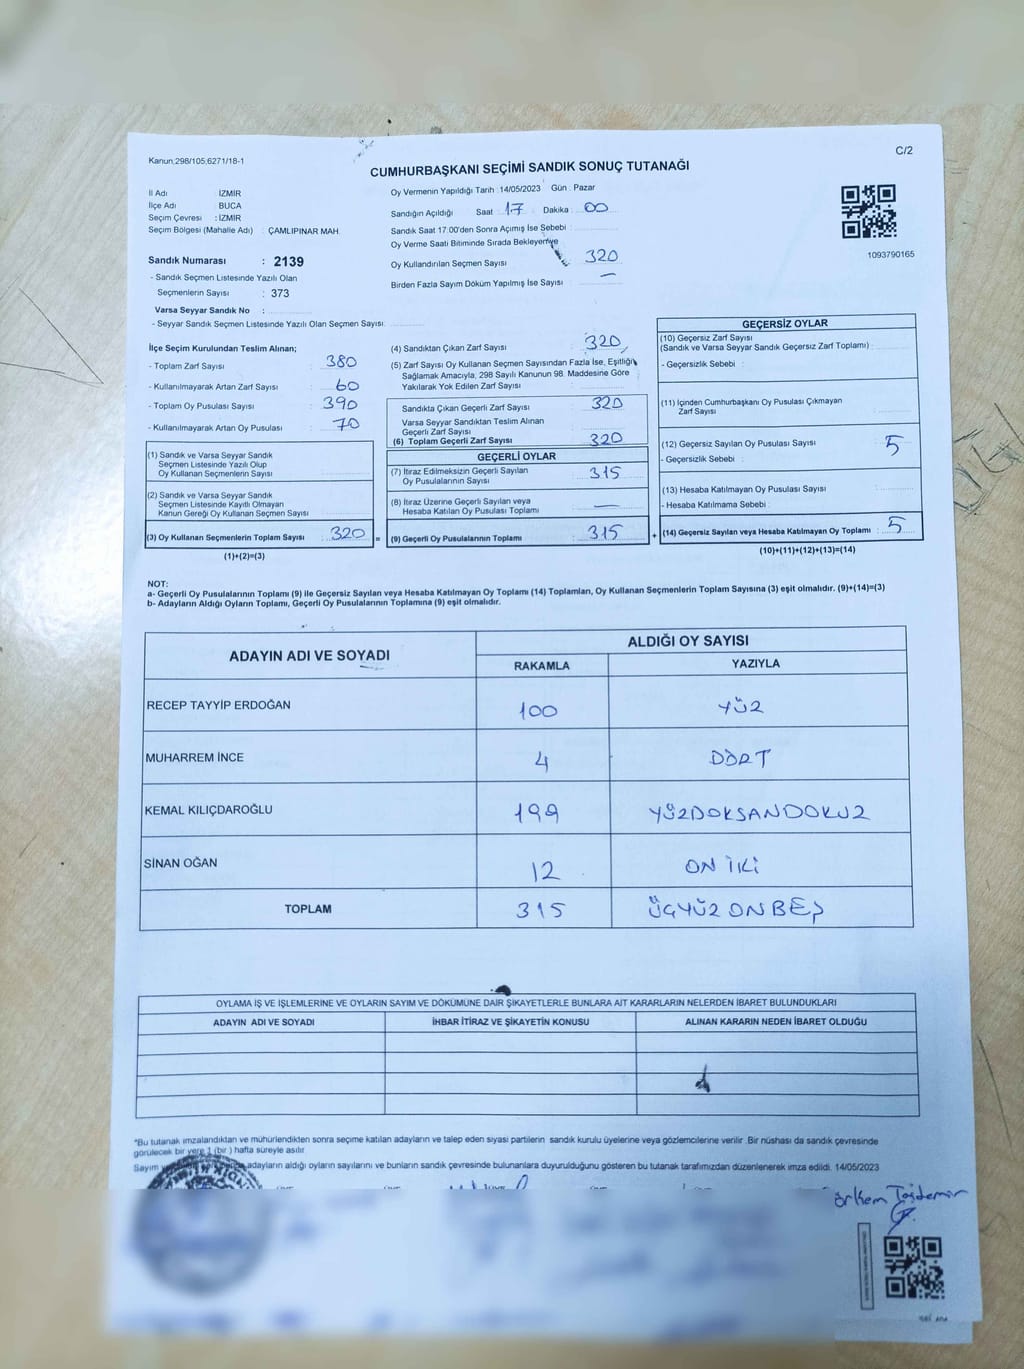 Kanun,298/105;6271/18-1
C/2
CUMHURBAŞKANI SEÇİMİ SANDIK SONUÇ TUTANAĞI
İl Adı İZMİR
İlçe Adı BUCA
Seçim Çevresi : İZMİR
Seçim Bölgesi (Mahalle Adı) : ÇAMLIPINAR MAH.
Oy Vermenin Yapıldığı Tarih : 14/05/2023 Gün : Pazar
Sandığın Açıldığı Saat 17 Dakika : 00
Sandık Saat 17:00'den Sonra Açımış İse Sebebi :
Oy Verme Saati Bitiminde Sırada Bekleyenlye
Oy Kullandırılan Seçmen Sayısı 320
Birden Fazla Sayım Döküm Yapılmış İse Sayısı : —
1093790165
Sandık Numarası : 2139
- Sandık Seçmen Listesinde Yazılı Olan
Seçmenlerin Sayısı : 373
Varsa Seyyar Sandık No :
- Seyyar Sandık Seçmen Listesinde Yazılı Olan Seçmen Sayısı:
İlçe Seçim Kurulundan Teslim Alınan;
- Toplam Zarf Sayısı : 380
- Kullanılmayarak Artan Zarf Sayısı : 60
- Toplam Oy Pusulası Sayısı : 390
- Kullanılmayarak Artan Oy Pusulası : 70
(1) Sandık ve Varsa Seyyar Sandık
Seçmen Listesinde Yazılı Olup
Oy Kullanan Seçmenlerin Sayısı
(2) Sandık ve Varsa Seyyar Sandık
Seçmen Listesinde Kayıtlı Olmayan
Kanun Gereği Oy Kullanan Seçmen Sayısı
(3) Oy Kullanan Seçmenlerin Toplam Sayısı : 320 =
(1)+(2)=(3)
(4) Sandıktan Çıkan Zarf Sayısı : 320
(5) Zarf Sayısı Oy Kullanan Seçmen Sayısından Fazla İse, Eşitliği
Sağlamak Amacıyla, 298 Sayılı Kanunun 98. Maddesine Göre
Yakılarak Yok Edilen Zarf Sayısı :
Sandıkta Çıkan Geçerli Zarf Sayısı : 320
Varsa Seyyar Sandıktan Teslim Alınan
Geçerli Zarf Sayısı
(6) Toplam Geçerli Zarf Sayısı : 320
GEÇERLİ OYLAR
(7) İtiraz Edilmeksizin Geçerli Sayılan
Oy Pusulalarının Sayısı : 315
(8) İtiraz Üzerine Geçerli Sayılan veya
Hesaba Katılan Oy Pusulası Toplamı : —
(9) Geçerli Oy Pusulalarının Toplamı : 315 +
GEÇERSİZ OYLAR
(10) Geçersiz Zarf Sayısı
(Sandık ve Varsa Seyyar Sandık Geçersiz Zarf Toplamı) :
- Geçersizlik Sebebi :
(11) İçinden Cumhurbaşkanı Oy Pusulası Çıkmayan
Zarf Sayısı
(12) Geçersiz Sayılan Oy Pusulası Sayısı : 5
- Geçersizlik Sebebi :
(13) Hesaba Katılmayan Oy Pusulası Sayısı :
- Hesaba Katılmama Sebebi :
(14) Geçersiz Sayılan veya Hesaba Katılmayan Oy Toplamı : 5
(10)+(11)+(12)+(13)=(14)
NOT:
a- Geçerli Oy Pusulalarının Toplamı (9) ile Geçersiz Sayılan veya Hesaba Katılmayan Oy Toplamı (14) Toplamları, Oy Kullanan Seçmenlerin Toplam Sayısına (3) eşit olmalıdır. (9)+(14)=(3)
b- Adayların Aldığı Oyların Toplamı, Geçerli Oy Pusulalarının Toplamına (9) eşit olmalıdır.
ADAYIN ADI VE SOYADI ALDIĞI OY SAYISI
RAKAMLA YAZIYLA
RECEP TAYYİP ERDOĞAN 100 YÜZ
MUHARREM İNCE 4 DÖRT
KEMAL KILIÇDAROĞLU 199 YÜZDOKSANDOKUZ
SİNAN OĞAN 12 ON İKİ
TOPLAM 315 ÜÇYÜZ ONBEŞ
OYLAMA İŞ VE İŞLEMLERİNE VE OYLARIN SAYIM VE DÖKÜMÜNE DAİR ŞİKAYETLERLE BUNLARA AİT KARARLARIN NELERDEN İBARET BULUNDUKLARI
ADAYIN ADI VE SOYADI İHBAR İTİRAZ VE ŞİKAYETİN KONUSU ALINAN KARARIN NEDEN İBARET OLDUĞU
*Bu tutanak imzalandıktan ve mühürlendikten sonra seçime katılan adayların ve talep eden siyasi partilerin sandık kurulu üyelerine veya gözlemcilerine verilir. Bir nüshası da sandık çevresinde
görülecek bir yere 1 (bir) hafta süreyle asılır
Sayım adayların aldığı oyların sayılarını ve bunların sandık çevresinde bulunanlara duyurulduğunu gösteren bu tutanak tarafımızdan düzenlenerek imza edildi. 14/05/2023
Görkem Taşdemir